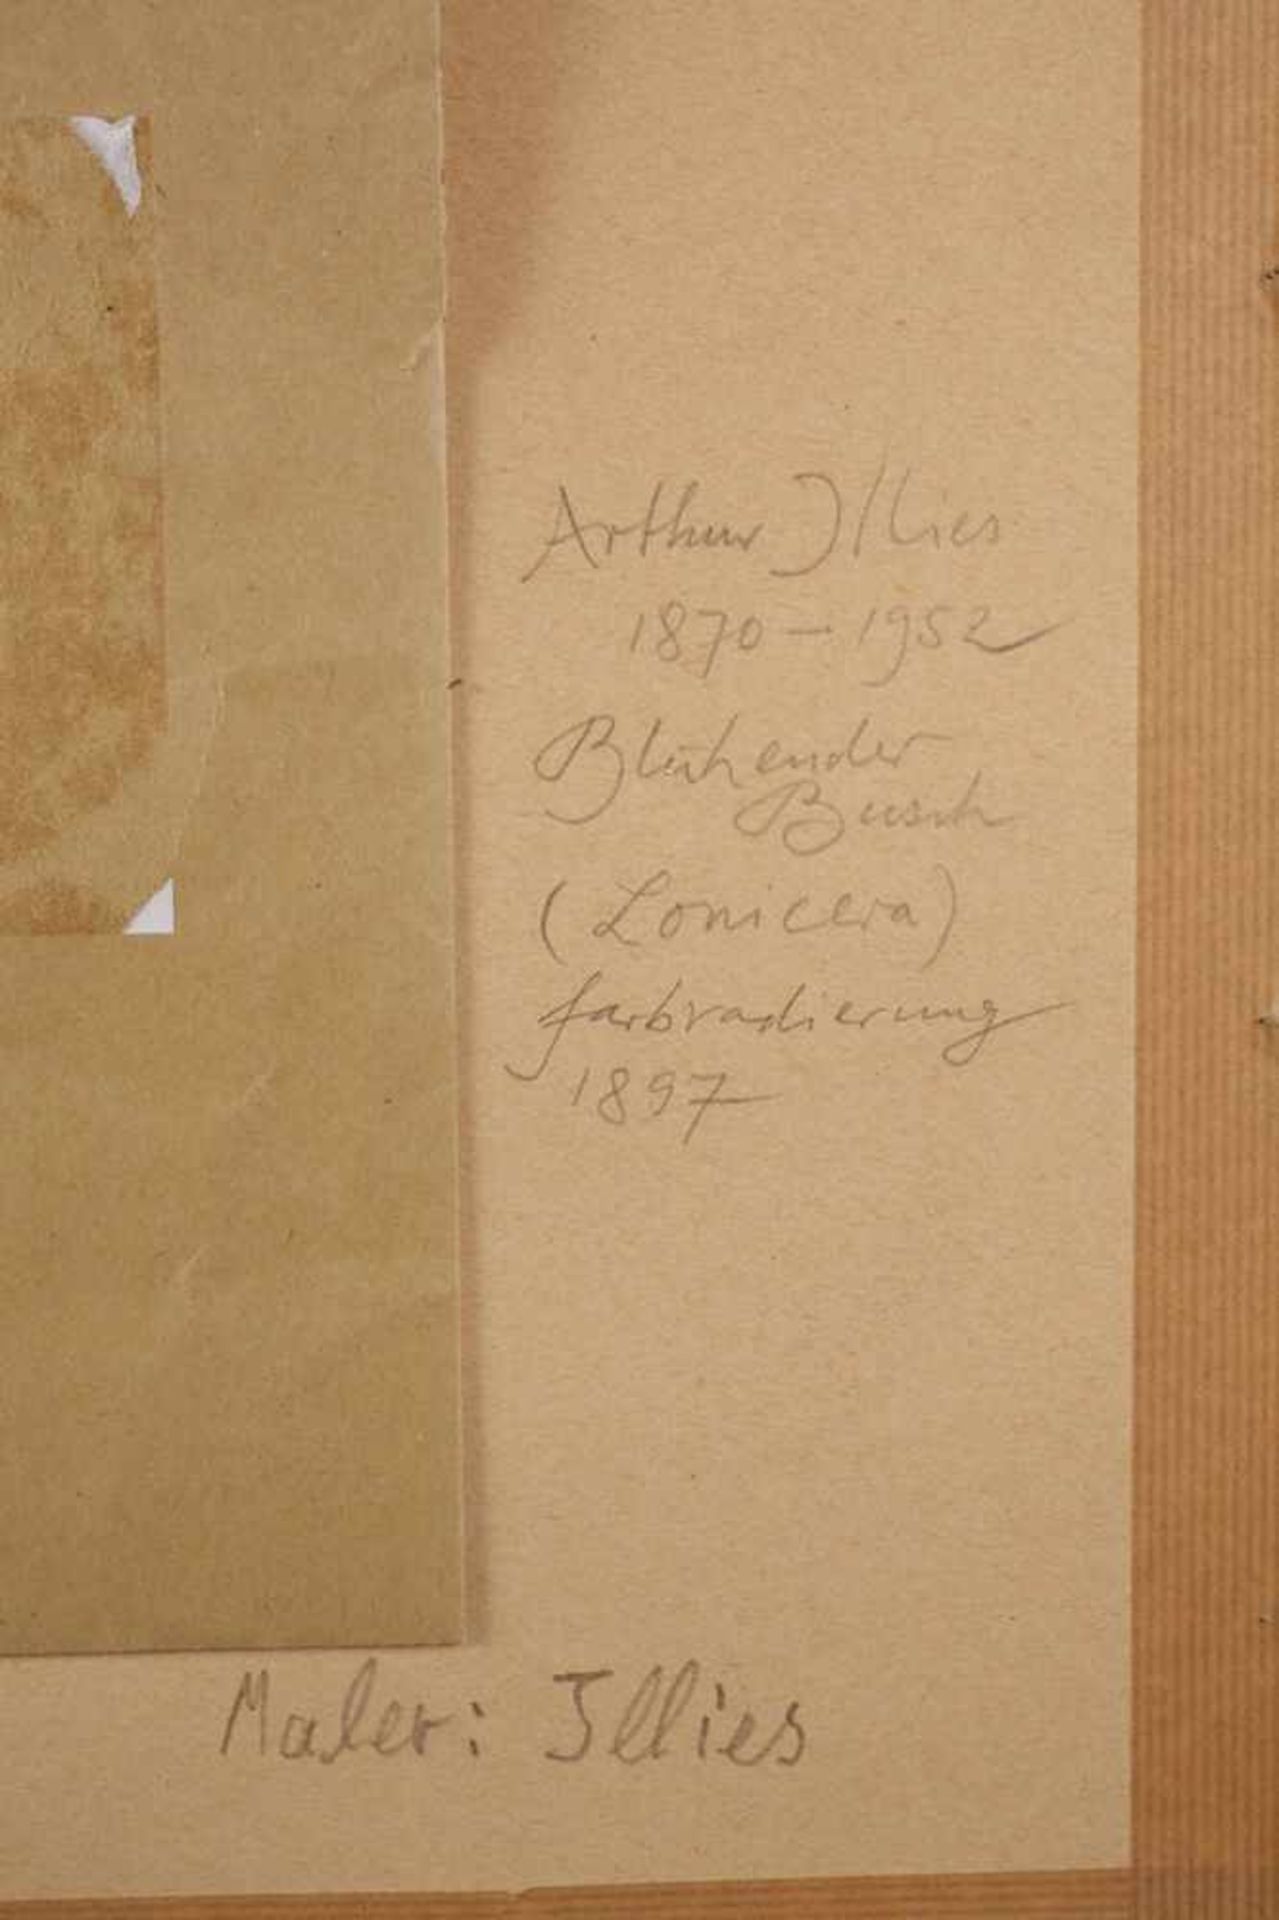 Arthur Illies
1870 – 1952
Blühender
Busch
(Lonicera)
Farbradierung
1897
Maler: Illies